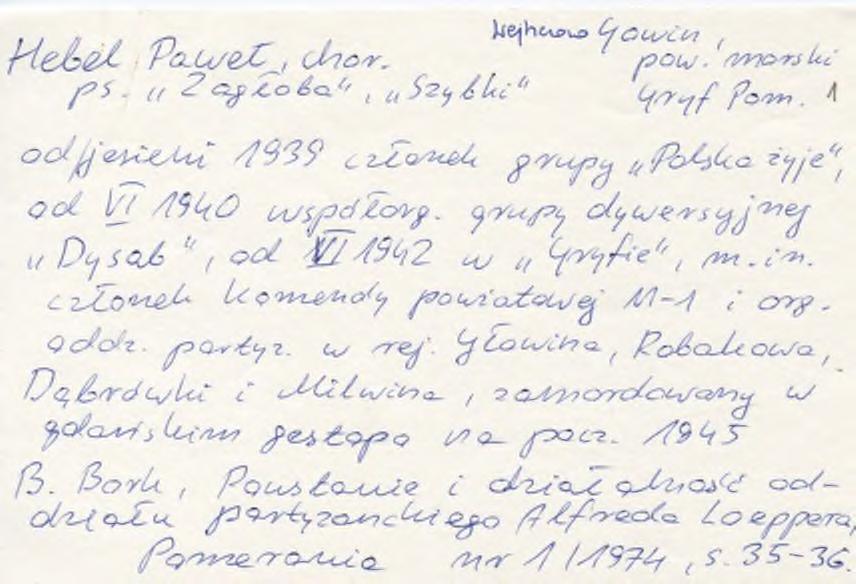 Wejherowo Gowin,
Hebel Paweł, chor. pow. morski
ps. „Zagłoba", „Szybki" Gryf Pom. 1
od jesieni 1939 członek grupy „Polska żyje",
od VI 1940 współorg. grupy dywersyjnej
„Dysab", od VI 1942 w „Gryfie", m.in.
członek Komendy powiatowej M-1 i org.
oddz. partyz. w rej. Głowina, Robakowa,
Dąbrówki i Milwina, zamordowany w
gdańskim gestapo na pocz. 1945
B. Bork, Powstanie i działalność od-
działu partyzanckiego Alfreda Loeppera,
Pomerania nr 1/1974, s. 35-36.